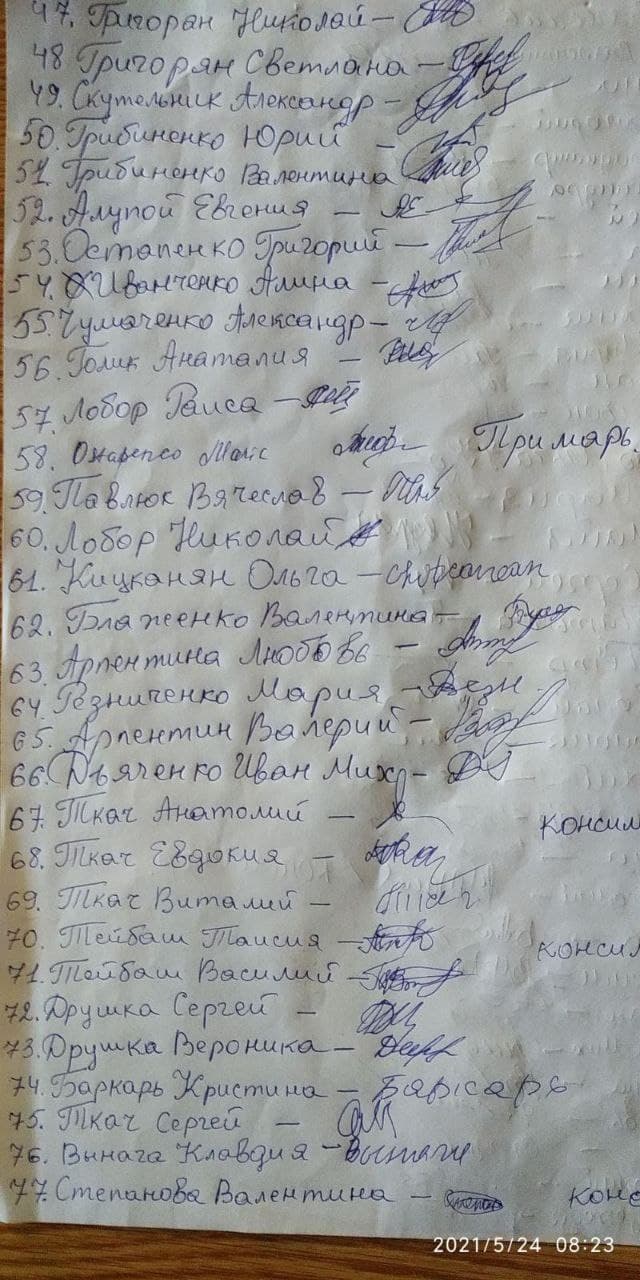 47. Григоран Николай –
48 Григорян Светлана –
49. Скутельник Александр –
50. Грибиненко Юрий –
51. Грибиненко Валентина
52. Алупой Евгения –
53. Остапенко Григорий –
54. Иванченко Алина –
55. Чумаченко Александр –
56. Голик Анаталия –
57. Лобор Раиса –
58. Примарь.
59. Павлюк Вячеслав –
60. Лобор Николай
61. Кицканян Ольга –
62. Блаженко Валентина –
63. Арпентина Любовь –
64. Резниченко Мария –
65. Арпентин Валерий –
66. Дьяченко Иван Мих –
67. Ткач Анатолий – консил
68. Ткач Евдокия –
69. Ткач Виталий –
70. Тейбаш Таисия – консил
71. Тейбаш Василий –
72. Друшка Сергей –
73. Друшка Вероника –
74. Баркарь Кристина – Баркарь
75. Ткач Сергей –
76. Вынага Клавдия –
77. Степанова Валентина – конс
2021/5/24 08:23